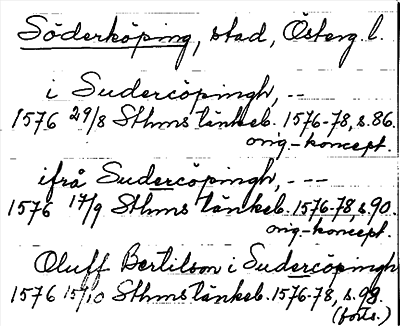 Söderköping, stad, Österg. l.
i Sudercöpingh, --
1576 29/8 Sthms tänkeb. 1576-78, s. 86.
orig.-koncept.
ifrå Sudercöpingh, ---
1576 17/9 Sthms tänkeb. 1576-78, s. 90.
orig.-koncept.
Oluff Bertilson i Sudercöpingh
1576 15/10 Sthms tänkeb. 1576-78, s. 98.
(forts.)